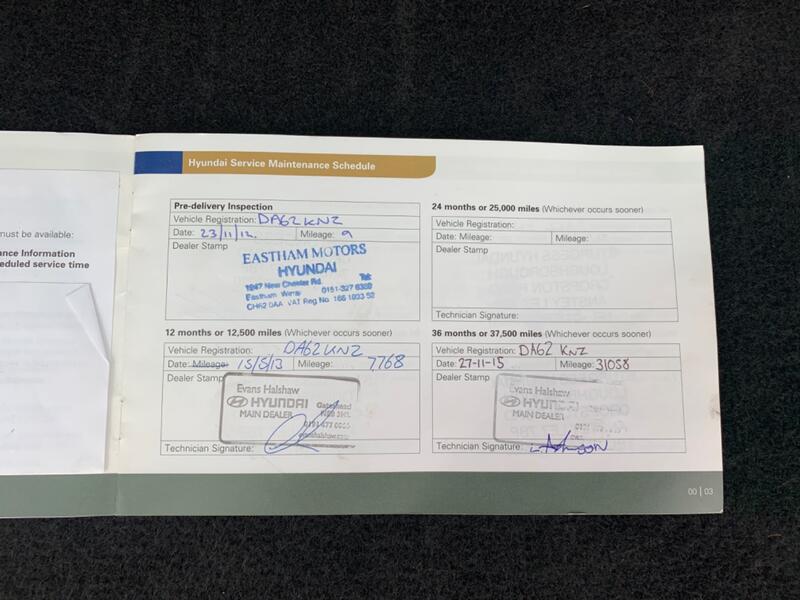 must be available:
ance Information
eduled service time
Hyundai Service Maintenance Schedule
Pre-delivery Inspection
Vehicle Registration: DA62KNZ
Date: 23/11/12. Mileage: 9
Dealer Stamp
EASTHAM MOTORS
HYUNDAI
1947 New Chester Rd. Tel:
Eastham Wirral 0151-327
CH62 0AA VAT Reg No 166
12 months or 12,500 miles (Whichever occurs sooner)
Vehicle Registration: DA62KNZ
Date: Mileage: 15/5/13 Mileage: 7768
Dealer Stamp
Evans Halshaw
HYUNDAI Gateshead
MAIN DEALER
Technician Signature:
24 months or 25,000 miles (Whichever occurs sooner)
Vehicle Registration:
Date: Mileage: Mileage:
Dealer Stamp
Technician Signature:
36 months or 37,500 miles (Whichever occurs sooner)
Vehicle Registration: DA62 KNZ
Date: 27-11-15 Mileage: 31058
Dealer Stamp
Evans Halshaw
HYUNDAI
MAIN DEALER
Technician Signature:
00 | 03